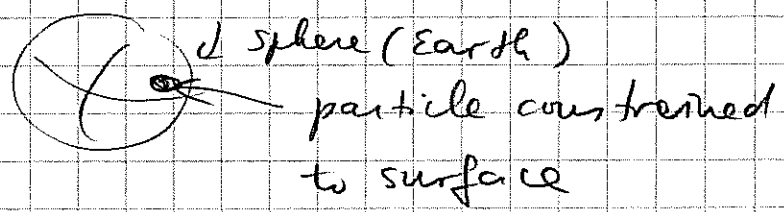 sphere (Earth)
particle constrained
to surface